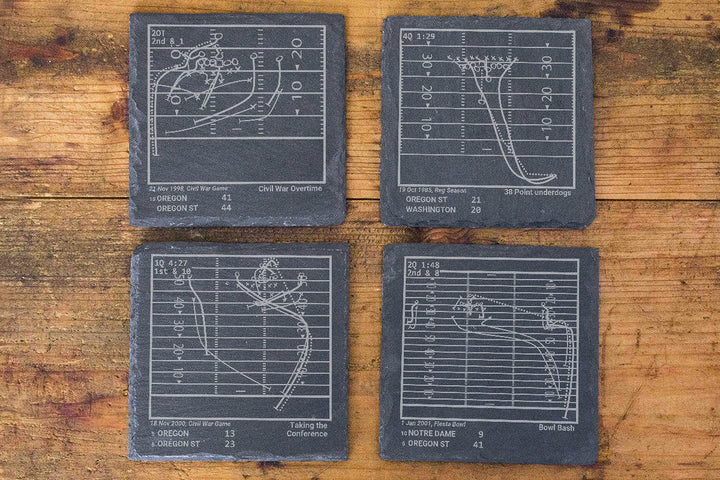 2OT
2nd & 1
20
10
22 Nov 1998, Civil War Game
Civil War Overtime
15 OREGON 41
OREGON ST 44
4Q 1:29
30
20
10
30
20
10
19 Oct 1985, Reg Season
38 Point underdogs
OREGON ST 21
WASHINGTON 20
1Q 4:27
1st & 10
40
30
20
10
30
20
10
18 Nov 2000, Civil War Game
Taking the
Conference
5 OREGON 13
8 OREGON ST 23
2Q 1:48
2nd & 8
1 Jan 2001, Fiesta Bowl
Bowl Bash
10 NOTRE DAME 9
5 OREGON ST 41